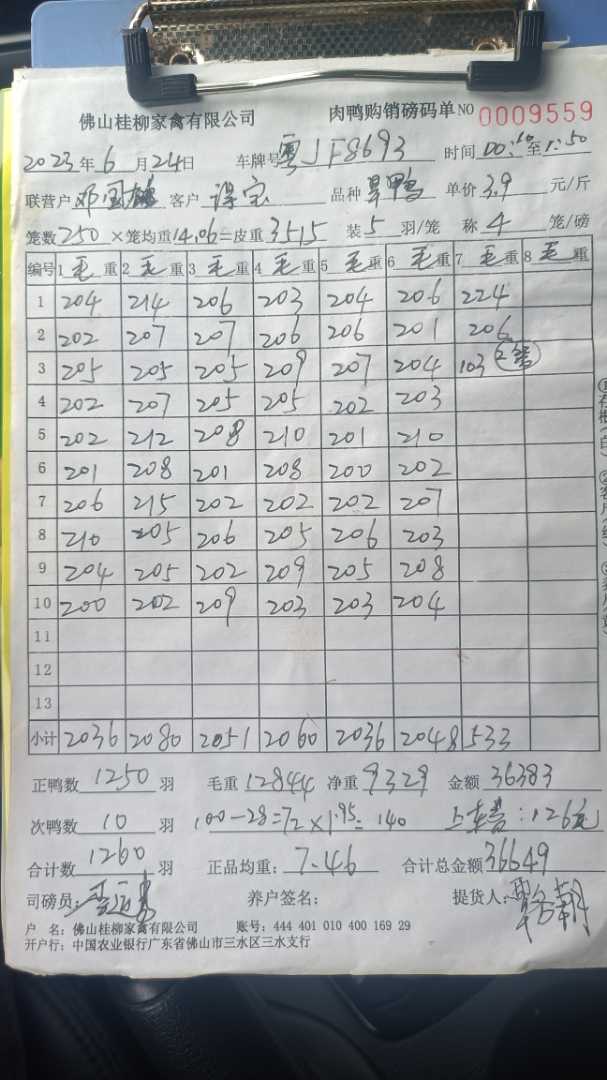 佛山桂柳家禽有限公司 肉鸭购销磅码单 NO 0009559
2023年6月24日 车牌号 粤JF8693 时间 00:10至1:50
联营户 邓国雄 客户 得宝 品种 旱鸭 单价 3.9 元/斤
笼数 250 ×笼均重 14.06 =皮重 3515 装 5 羽/笼 称 4 笼/磅
编号 1 毛重 2 毛重 3 毛重 4 毛重 5 毛重 6 毛重 7 毛重 8 重
1 204 214 206 203 204 206 224
2 202 207 207 206 206 201 206
3 205 205 205 209 207 204 103 2笼
4 202 207 205 205 202 203
5 202 212 208 210 201 210
6 201 208 201 208 200 202
7 206 215 202 202 202 207
8 210 205 206 205 206 203
9 204 205 202 209 205 208
10 200 202 209 203 203 204
11
12
13
小计 2036 2080 2051 2060 2036 2048 533
正鸭数 1250 羽 毛重 12844 净重 9329 金额 36383
次鸭数 10 羽 100-28=72×1.95=140 上车费:126元
合计数 1260 羽 正品均重: 7.46 合计总金额 36649
司磅员: 养户签名: 提货人:
户 名: 佛山桂柳家禽有限公司 账号: 444 401 010 400 169 29
开户行: 中国农业银行广东省佛山市三水区三水支行